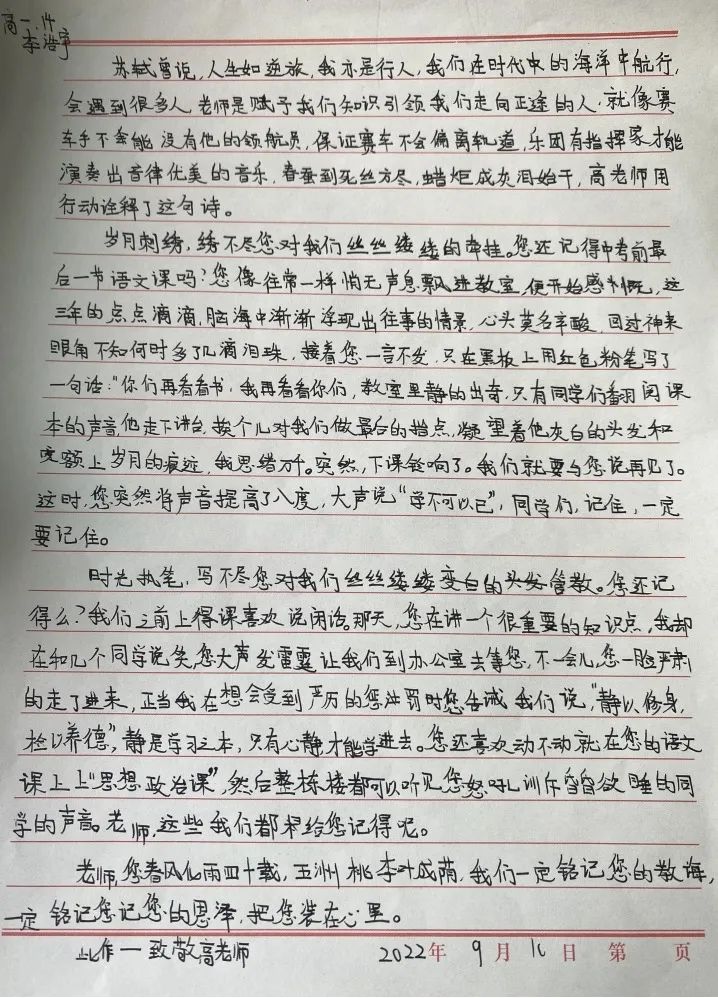 高一.14
李浩宇
苏轼曾说,人生如逆旅,我亦是行人,我们在时代中的海洋中航行,
会遇到很多人 老师是赋予我们知识引领我们走向正途的人.就像赛
车手不会能没有他的领航员,保证赛车不会偏离轨道,乐团有指挥家才能
演奏出音律优美的音乐,春蚕到死丝方尽,蜡炬成灰泪始干,高老师用
行动诠释了这句诗。
岁月刺绣,绣不尽您对我们丝丝缕缕的牵挂。您还记得中考前最
后一节语文课吗?您像往常一样悄无声息飘进教室,便开始感慨,这
三年的点点滴滴,脑海中渐渐浮现出往事的情景,心头莫名辛酸,回过神来
眼角不知何时多了几滴泪珠,接着您一言不发,只在黑板上用红色粉笔写了
一句话:"你们再看看书,我再看看你们,教室里静的出奇,只有同学们翻阅课
本的声音,他走下讲台,挨个儿对我们做最后的指点,凝望着他灰白的头发和
额上岁月的痕迹,我思绪万千。突然,下课铃响了。我们就要与您说再见了。
这时,您突然将声音提高了八度,大声说"学不可以已",同学们,记住,一定
要记住。
时光执笔,写不尽您对我们丝丝缕缕变白的头发管教。您还记
得么?我们之前上得课喜欢说闲话。那天,您在讲一个很重要的知识点,我却
在和几个同学说笑,您大声发雷霆让我们到办公室去等您,不一会儿,您一脸严肃
的走了进来,正当我在想会受到严历的惩罚时您告诫我们说,"静以修身,
检以养德",静是学习之本,只有心静才能学进去。您还喜欢动不动就在您的语文
课上上"思想政治课",然后整栋楼都可以听见您怒吼训斥昏昏欲睡的同
学的声音。老师,这些我们都替给您记得呢。
老师,您春风化雨四十载,五洲桃李叶成荫,我们一定铭记您的教诲,
一定铭记您记您的恩泽,把您装在心里。
此作一致敬高老师 2022年 9月 10日 第 页